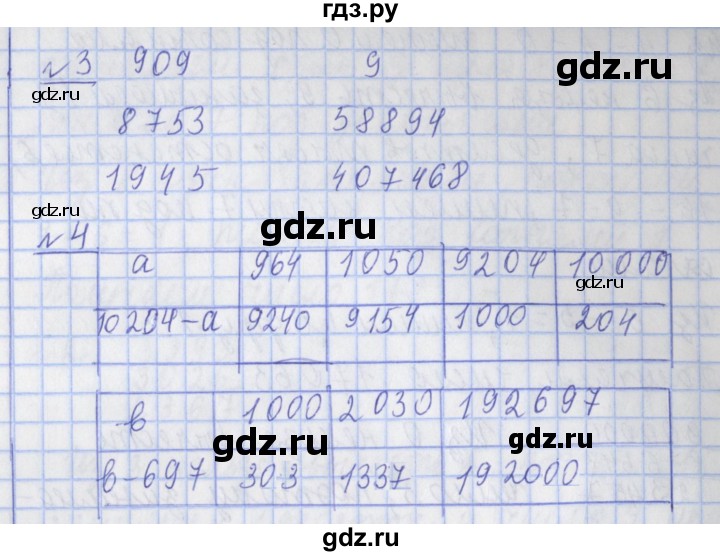 гдз.ру
№3 909 9
gdz.ru
gdz.ru
8753 58894
1945 407468
gdz.ru
gdz.ru
№4
а 964 1050 9204 10000
gdz.ru
10204-а 9240 9154 1000 204
в 1000 2030 192697
gdz.ru
gdz.ru
в-697 303 1337 192000
gdz.ru